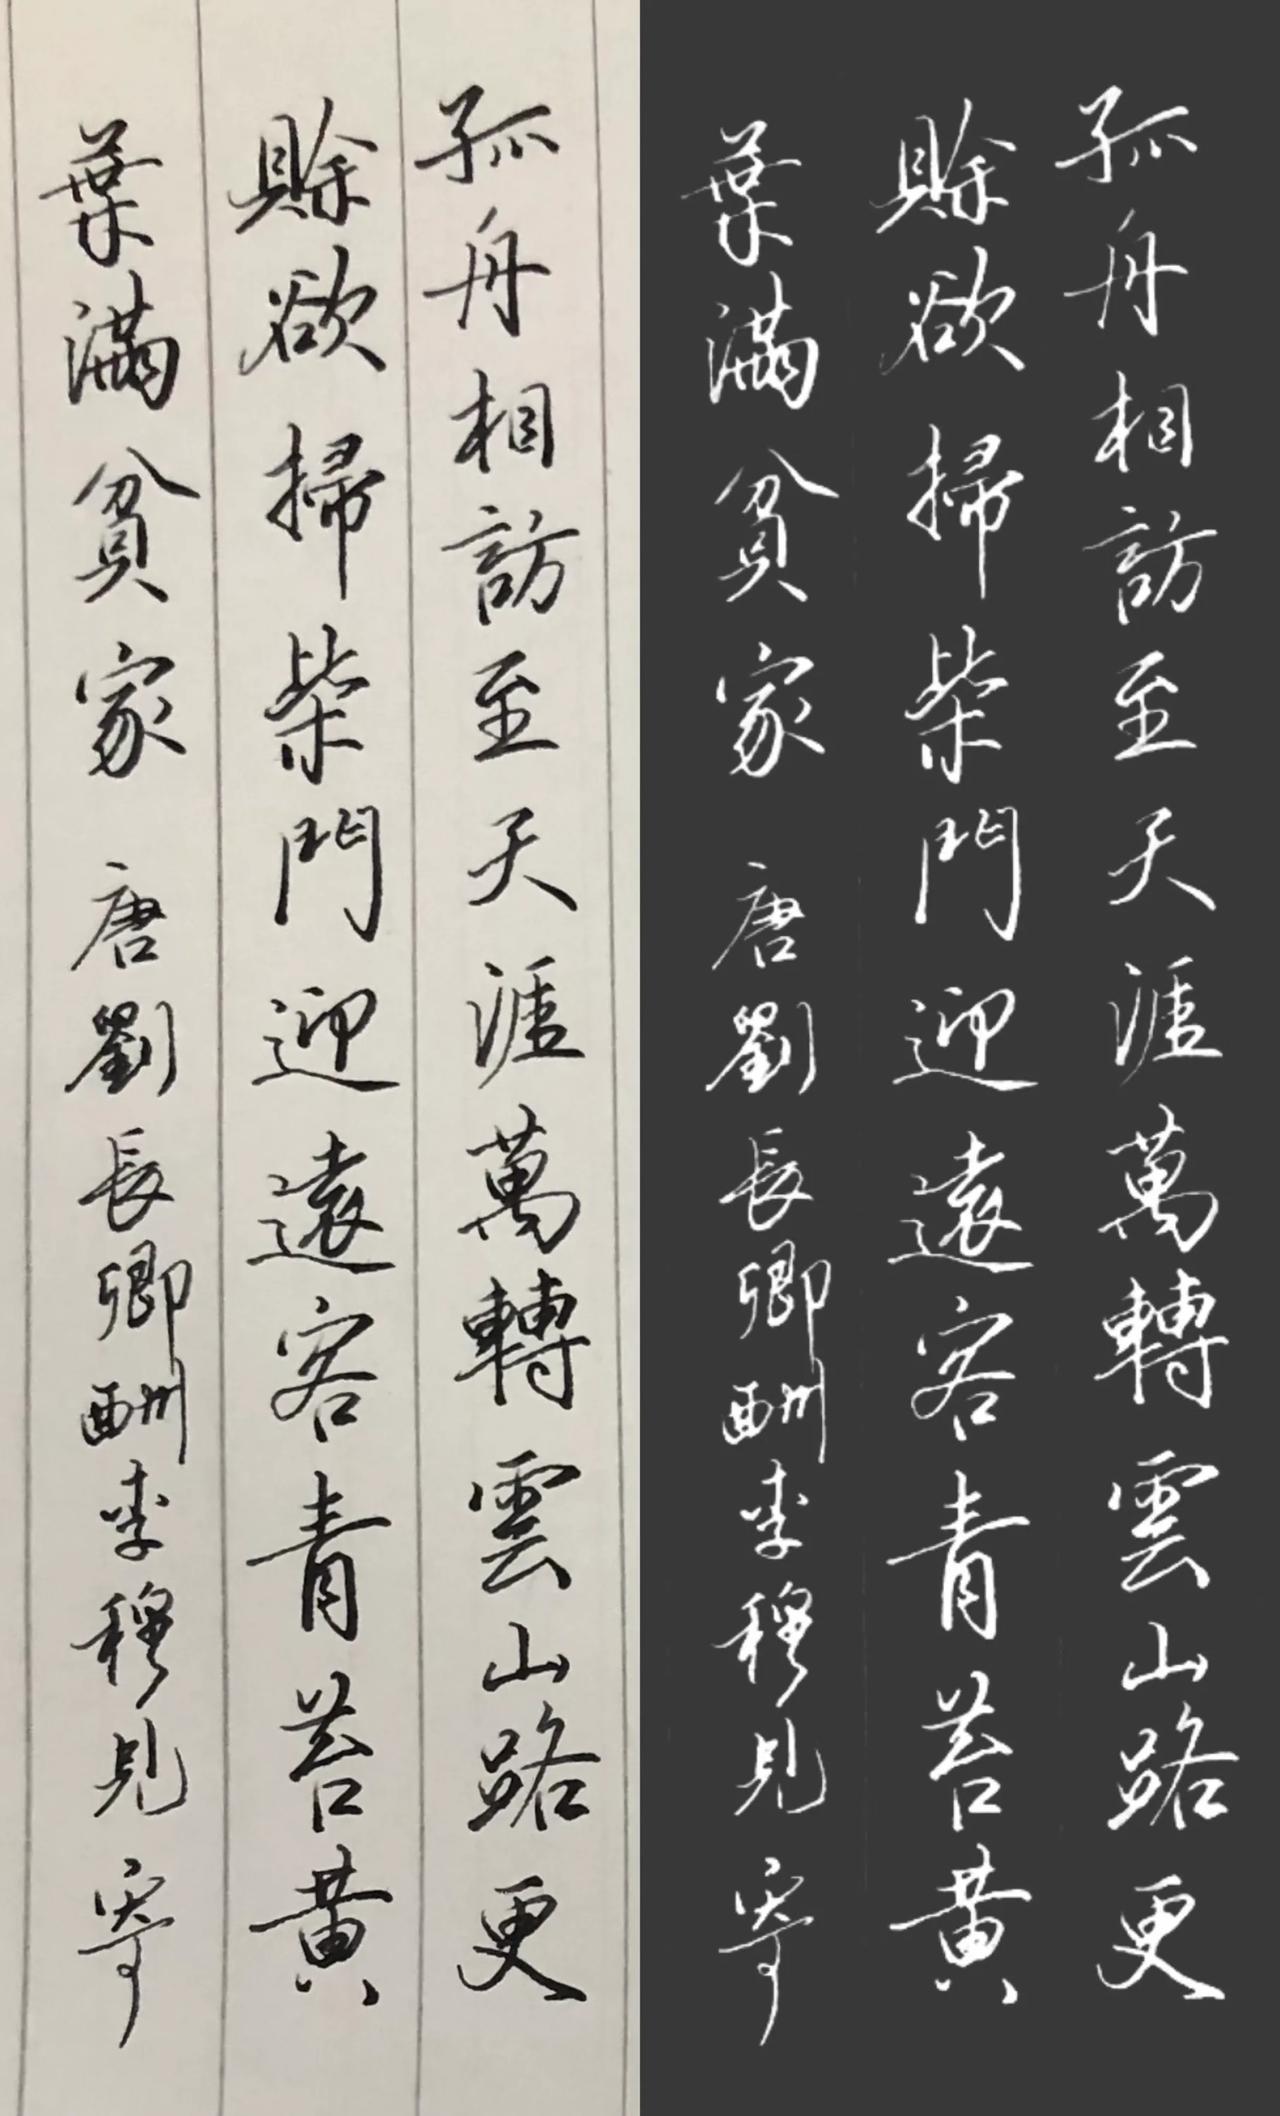 孤舟相訪至天涯萬轉雲山路更
賒欲掃柴門迎遠客青苔黄
葉滿貧家 唐劉長卿酬李穆見寄
孤舟相訪至天涯萬轉雲山路更
賒欲掃柴門迎遠客青苔黄
葉滿貧家 唐劉長卿酬李穆見寄